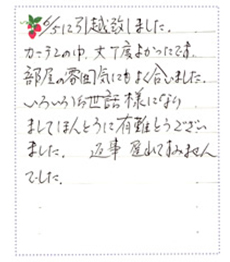 6/5に引越致しました。
カーテンの巾、丈丁度よかったです。
部屋の雰囲気にもよく合いました。
いろいろお世話様になり
ましてほんとうに有難とうござい
ました。 返事 遅れてすみません
でした.